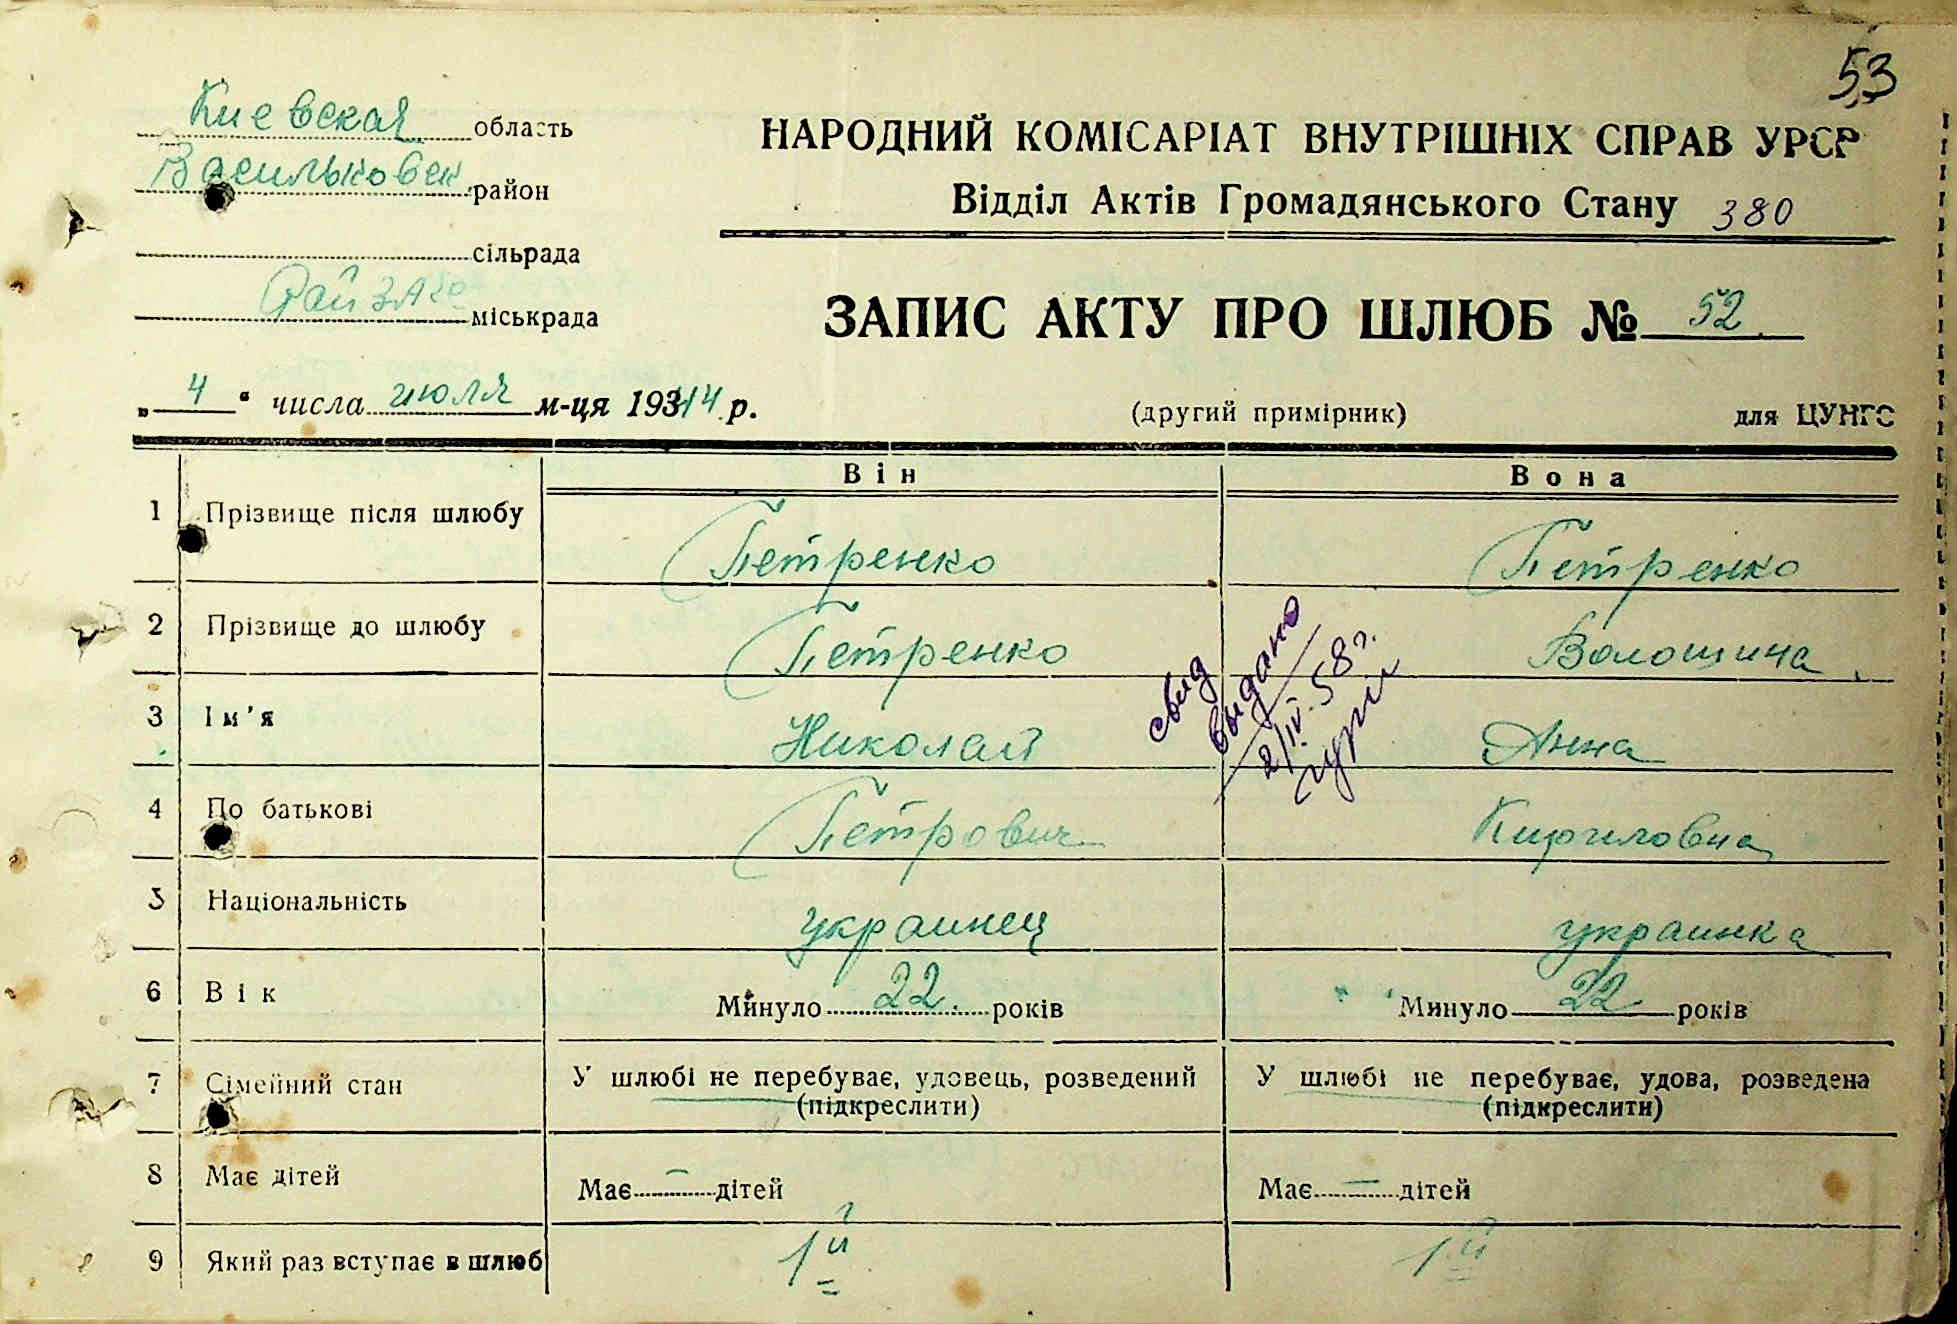 53
Киевская область
Васильковск. район
сільрада
РайЗАГС міськрада
НАРОДНИЙ КОМІСАРІАТ ВНУТРІШНІХ СПРАВ УРСР
Відділ Актів Громадянського Стану 380
ЗАПИС АКТУ ПРО ШЛЮБ № 52
„4“ числа июля м-ця 1944 р.
(другий примірник) для ЦУНГО
Він Вона
1 Прізвище після шлюбу Петренко Петренко
2 Прізвище до шлюбу Петренко Волошина
3 Ім'я Николай Анна
4 По батькові Петрович Кириловна
5 Національність украинец украинка
6 Вік Минуло 22 років Минуло 22 років
7 Сімейний стан У шлюбі не перебуває, удовець, розведений У шлюбі не перебуває, удова, розведена
(підкреслити) (підкреслити)
8 Має дітей Має — дітей Має — дітей
9 Який раз вступає в шлюб 1й 1й
свид
выдано
2/IV.58 г.